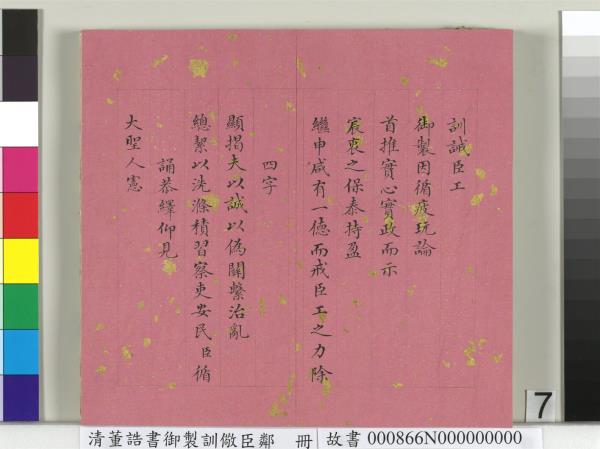 訓誡臣工
御製因循疲玩論
首推實心實政而示
宸衷之保泰持盈
繼申咸有一德而戒臣工之力除
四字
顯揭夫以誠以偽關繫治亂
總絜以洗滌積習察吏安民臣循
誦恭繹仰見
大聖人憲
7
清董誥書御製訓儆臣鄰 冊
故書 000866N000000000